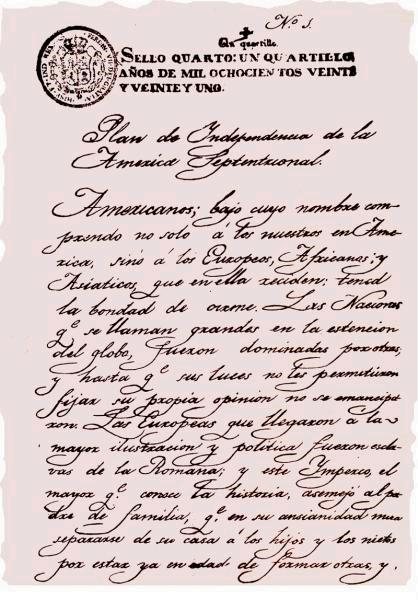 Nº 1.
Un quartillo.
SELLO QUARTO: UN QUARTILLO,
AÑOS DE MIL OCHOCIENTOS VEINTE
Y VEINTE Y UNO.
Plan de Independencia de la
America Septentrional.
Americanos; bajo cuyo nombre com
prendo no solo á los nuestros en Ame
rica, sinó á los Europeos, Africanos; y
Asiaticos, que en ella reciden: tened
la bondad de oirme. Las Naciones
q.e se llaman grandes en la estencion
del globo, fueron dominadas por otras;
y hasta q.e sus luces no les permitieron
fijar su propia opinion no se emancipa
ron. Las Europeas que llegaron á la
mayor ilustracion y politica fueron escla
vas de la Romana; y este Imperio, el
mayor q.e conoce la historia, asemejó al pa
dre de familia, q.e en su ansianidad mira
separarse de su casa á los hijos y los nietos
por estar ya en edad de formar otras, y